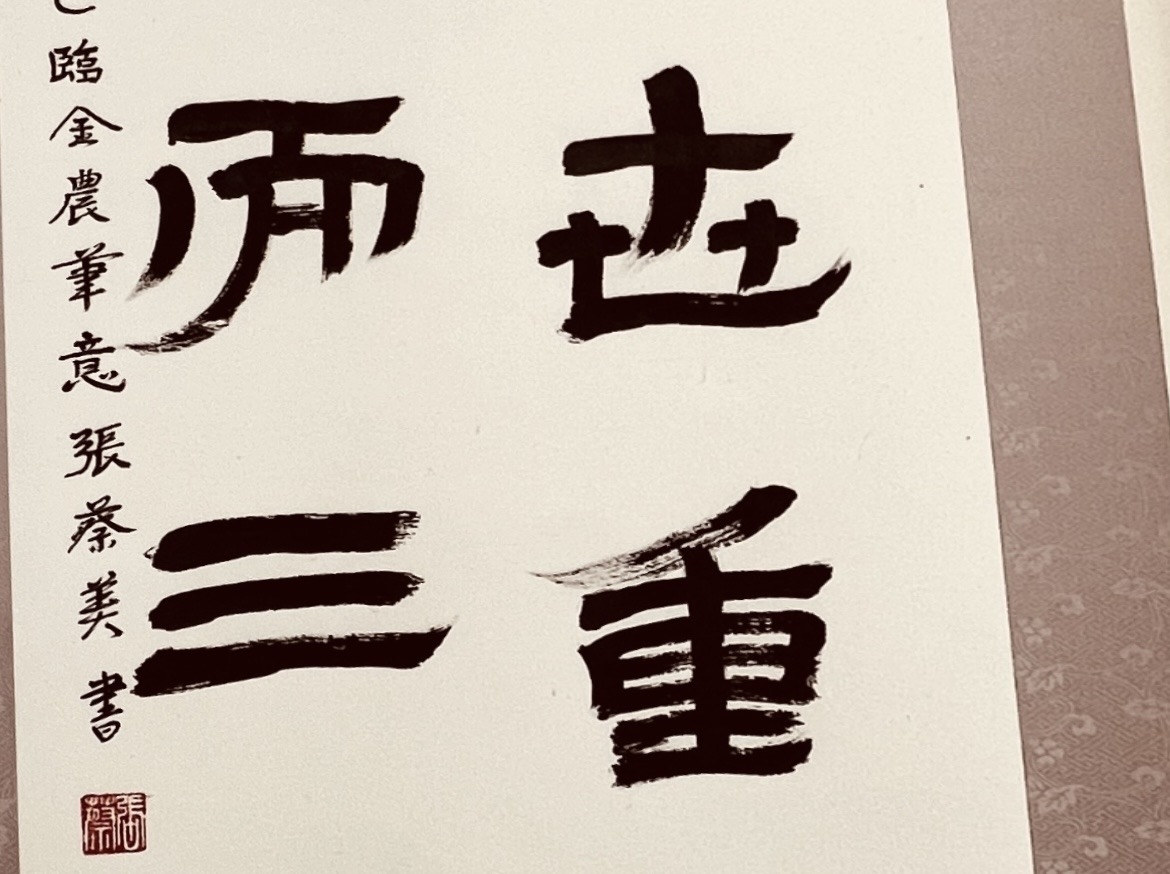 世重
而三
臨金農筆意張蔡美書
張蔡